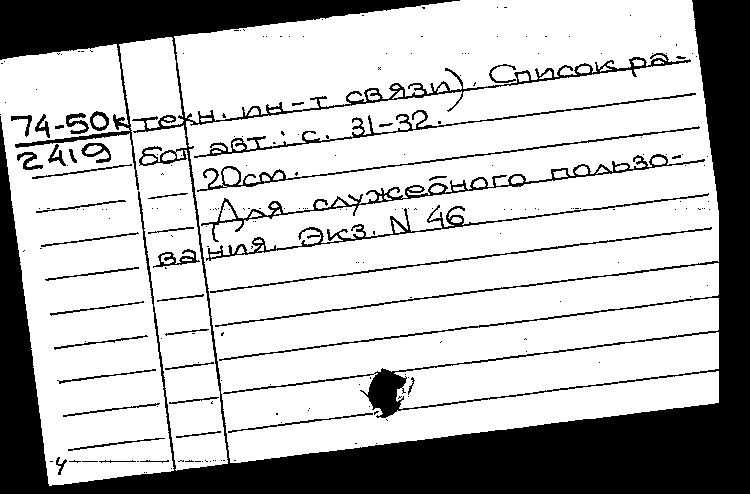 74-50к техн. ин-т связи). Список ра-
2419 бот авт.: с. 31-32.
20см.
Для служебного пользо-
вания. Экз. N 46
4